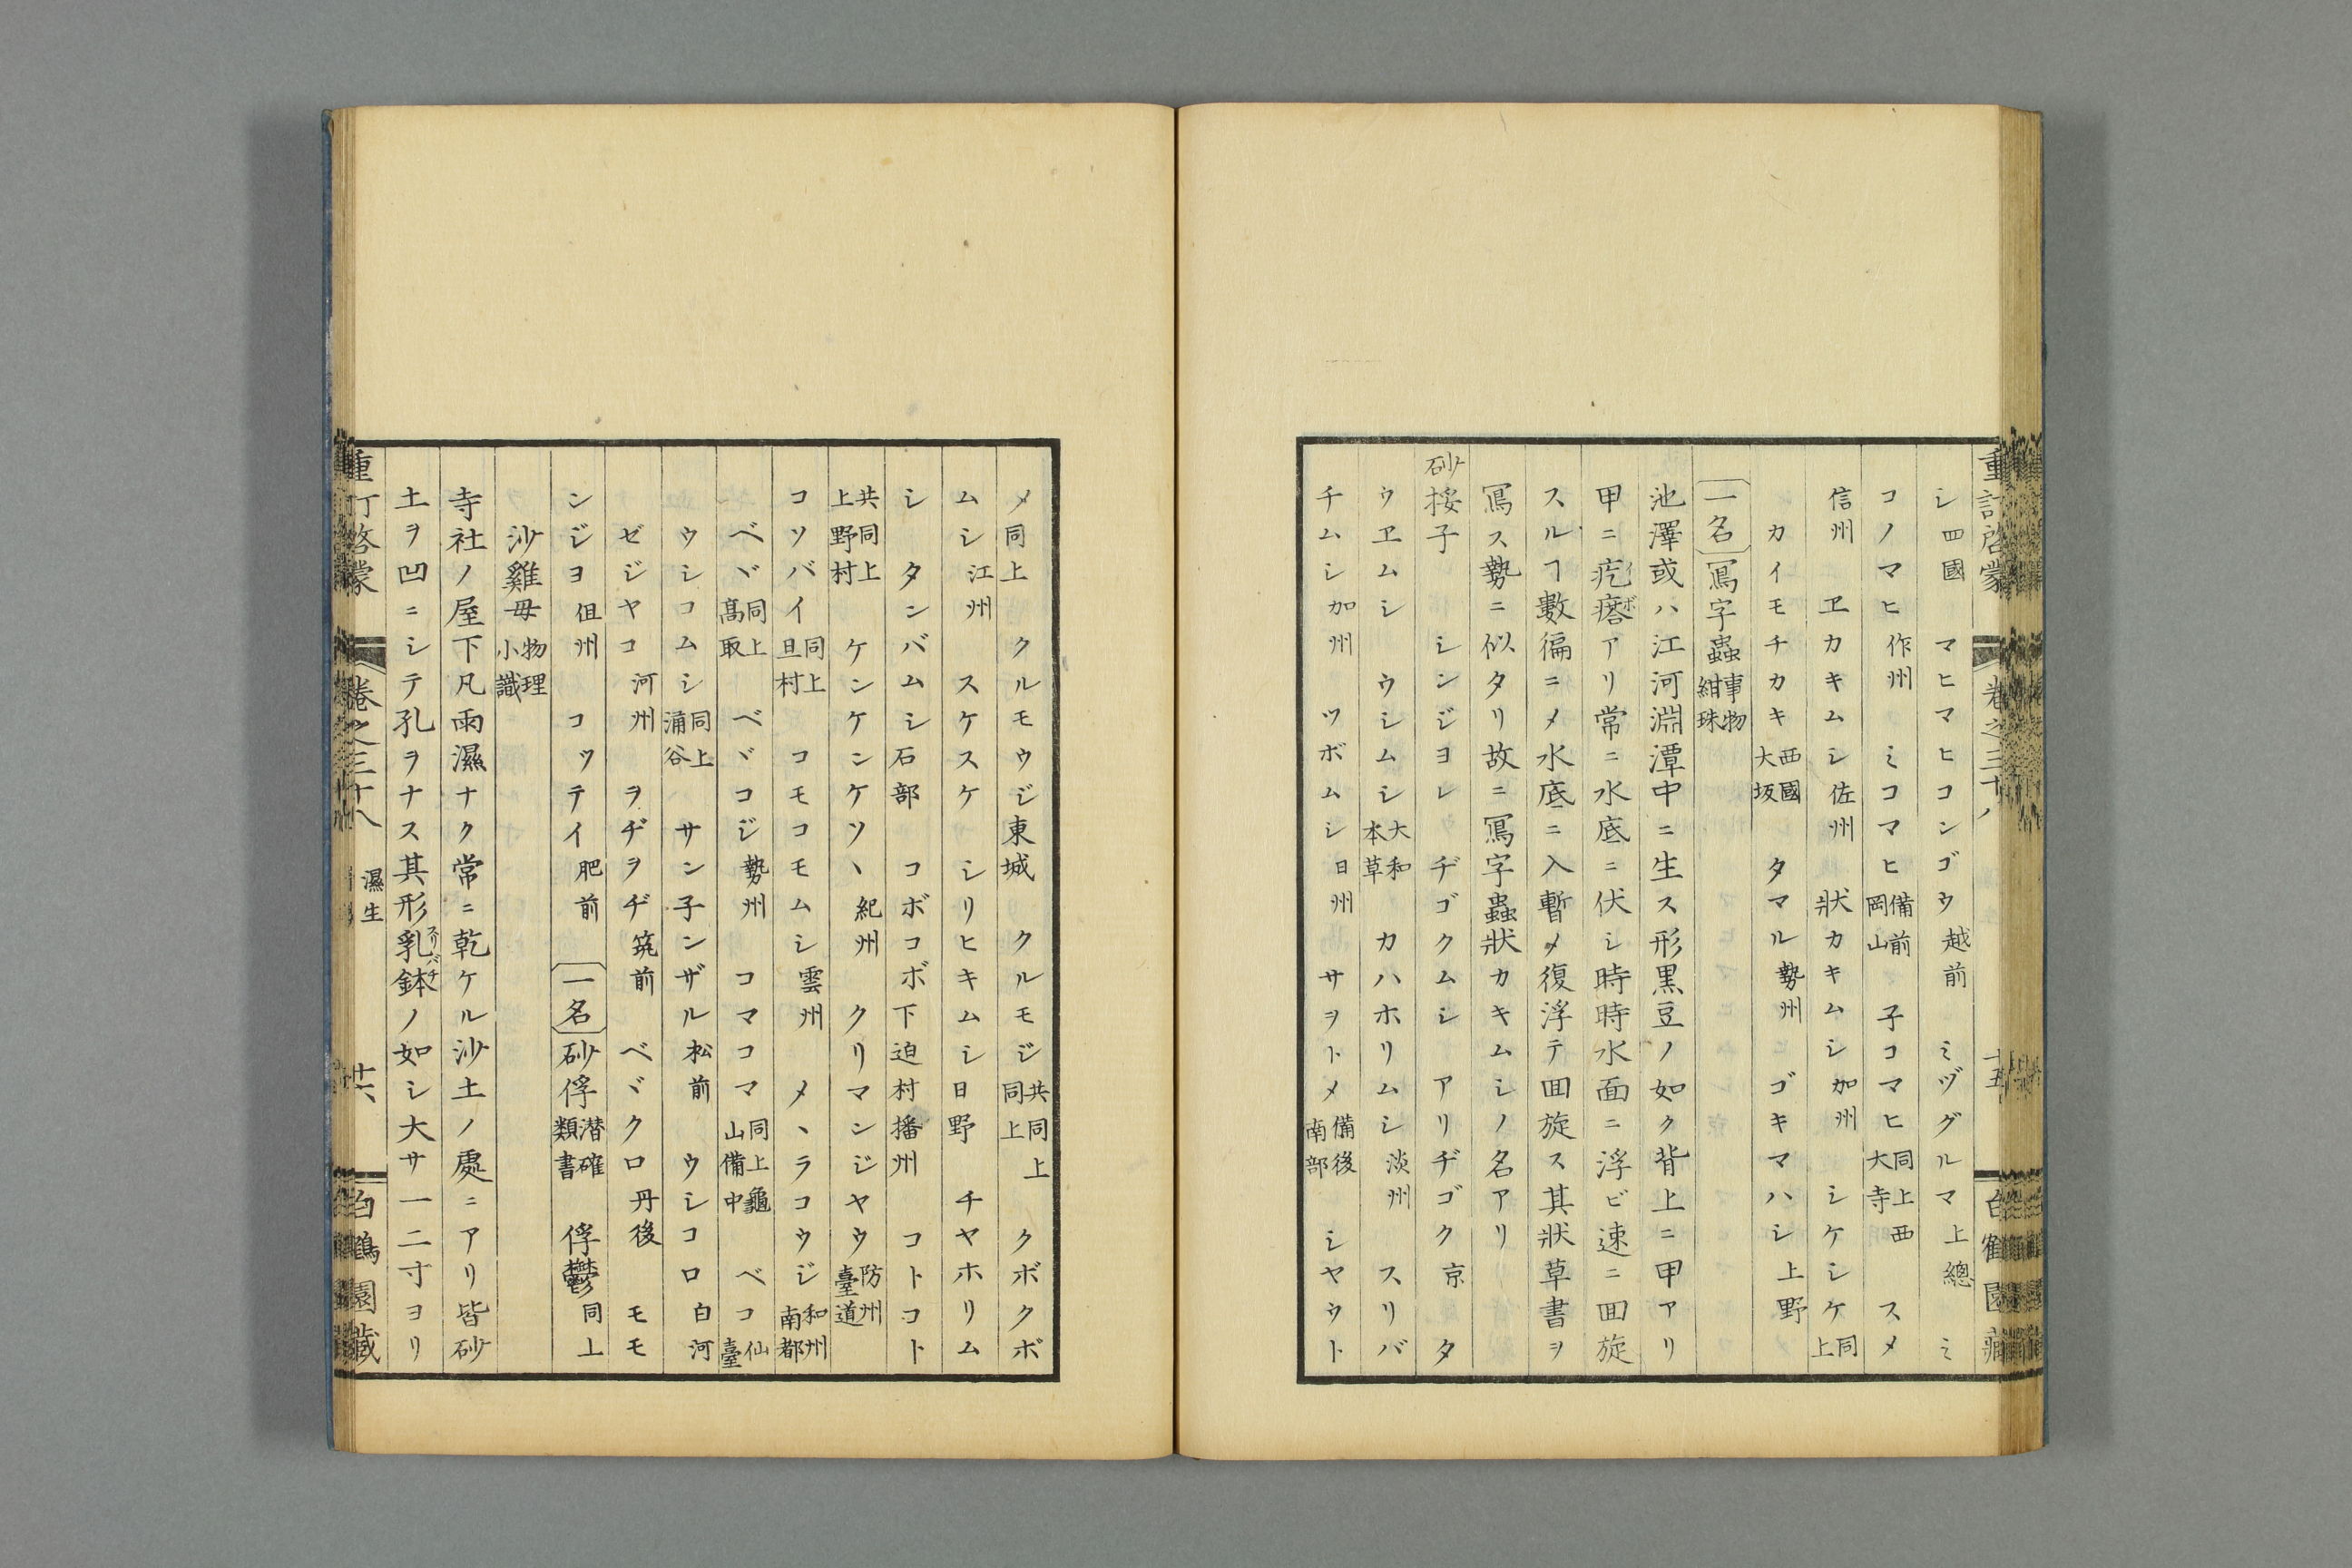 重訂啓蒙 卷之三十八 十五 白鶴園藏
シ四國 マヒマヒコンゴウ越前 ミヅグルマ上總 ミ
コノマヒ作州 ミコマヒ備前岡山 子コマヒ同上西大寺 スメ
信州 ヱカキムシ佐州 狀カキムシ加州 シケシケ同上
カイモチカキ西國大坂 タマル勢州 ゴキマハシ上野
一名 寫字蟲事物紺珠
池澤或ハ江河淵潭中ニ生ス形黒豆ノ如ク背上ニ甲アリ
甲ニ疙瘩イボアリ常ニ水底ニ伏シ時時水面ニ浮ビ速ニ囬旋
スルヿ數徧ニメ水底ニ入暫メ復浮テ囬旋ス其狀草書ヲ
寫ス勢ニ似タリ故ニ寫字蟲狀カキムシノ名アリ
砂挼子 シンジヨレ ヂゴクムシ アリヂゴク京 タ
ウヱムシ ウシムシ大和本草 カハホリムシ淡州 スリバ
チムシ加州 ツボムシ日州 サヲトメ備後南部 シヤウト
メ同上 クルモウジ東城 クルモジ共同上同上 クボクボ
ムシ江州 スケスケ シリヒキムシ日野 チヤホリム
シ タンバムシ石部 コボコボ下迫村播州 コトコト
共同上上野村 ケンケンケソヽ紀州 クリマンジヤウ防州臺道
コソバイ同上旦村 コモコモムシ雲州 メヽラコウジ和州南都
ベヾ同上髙取 ベヾコジ勢州 コマコマ同上龜山備中 ベコ仙臺
ウシコムシ同上涌谷 サン子ンザル松前 ウシコロ白河
ゼジヤコ河州 ヲヂヲヂ筑前 ベヾクロ丹後 モモ
ンジヨ伹州 コツテイ肥前 一名 砂俘潜確類書 俘鬱同上
沙雞母物理小識
寺社ノ屋下凡雨濕ナク常ニ乾ケル沙土ノ處ニアリ皆砂
土ヲ凹ニシテ孔ヲナス其形乳鉢スリバチノ如シ大サ一二寸ヨリ
重訂啓蒙 卷之三十八 濕生 十六 白鶴園藏